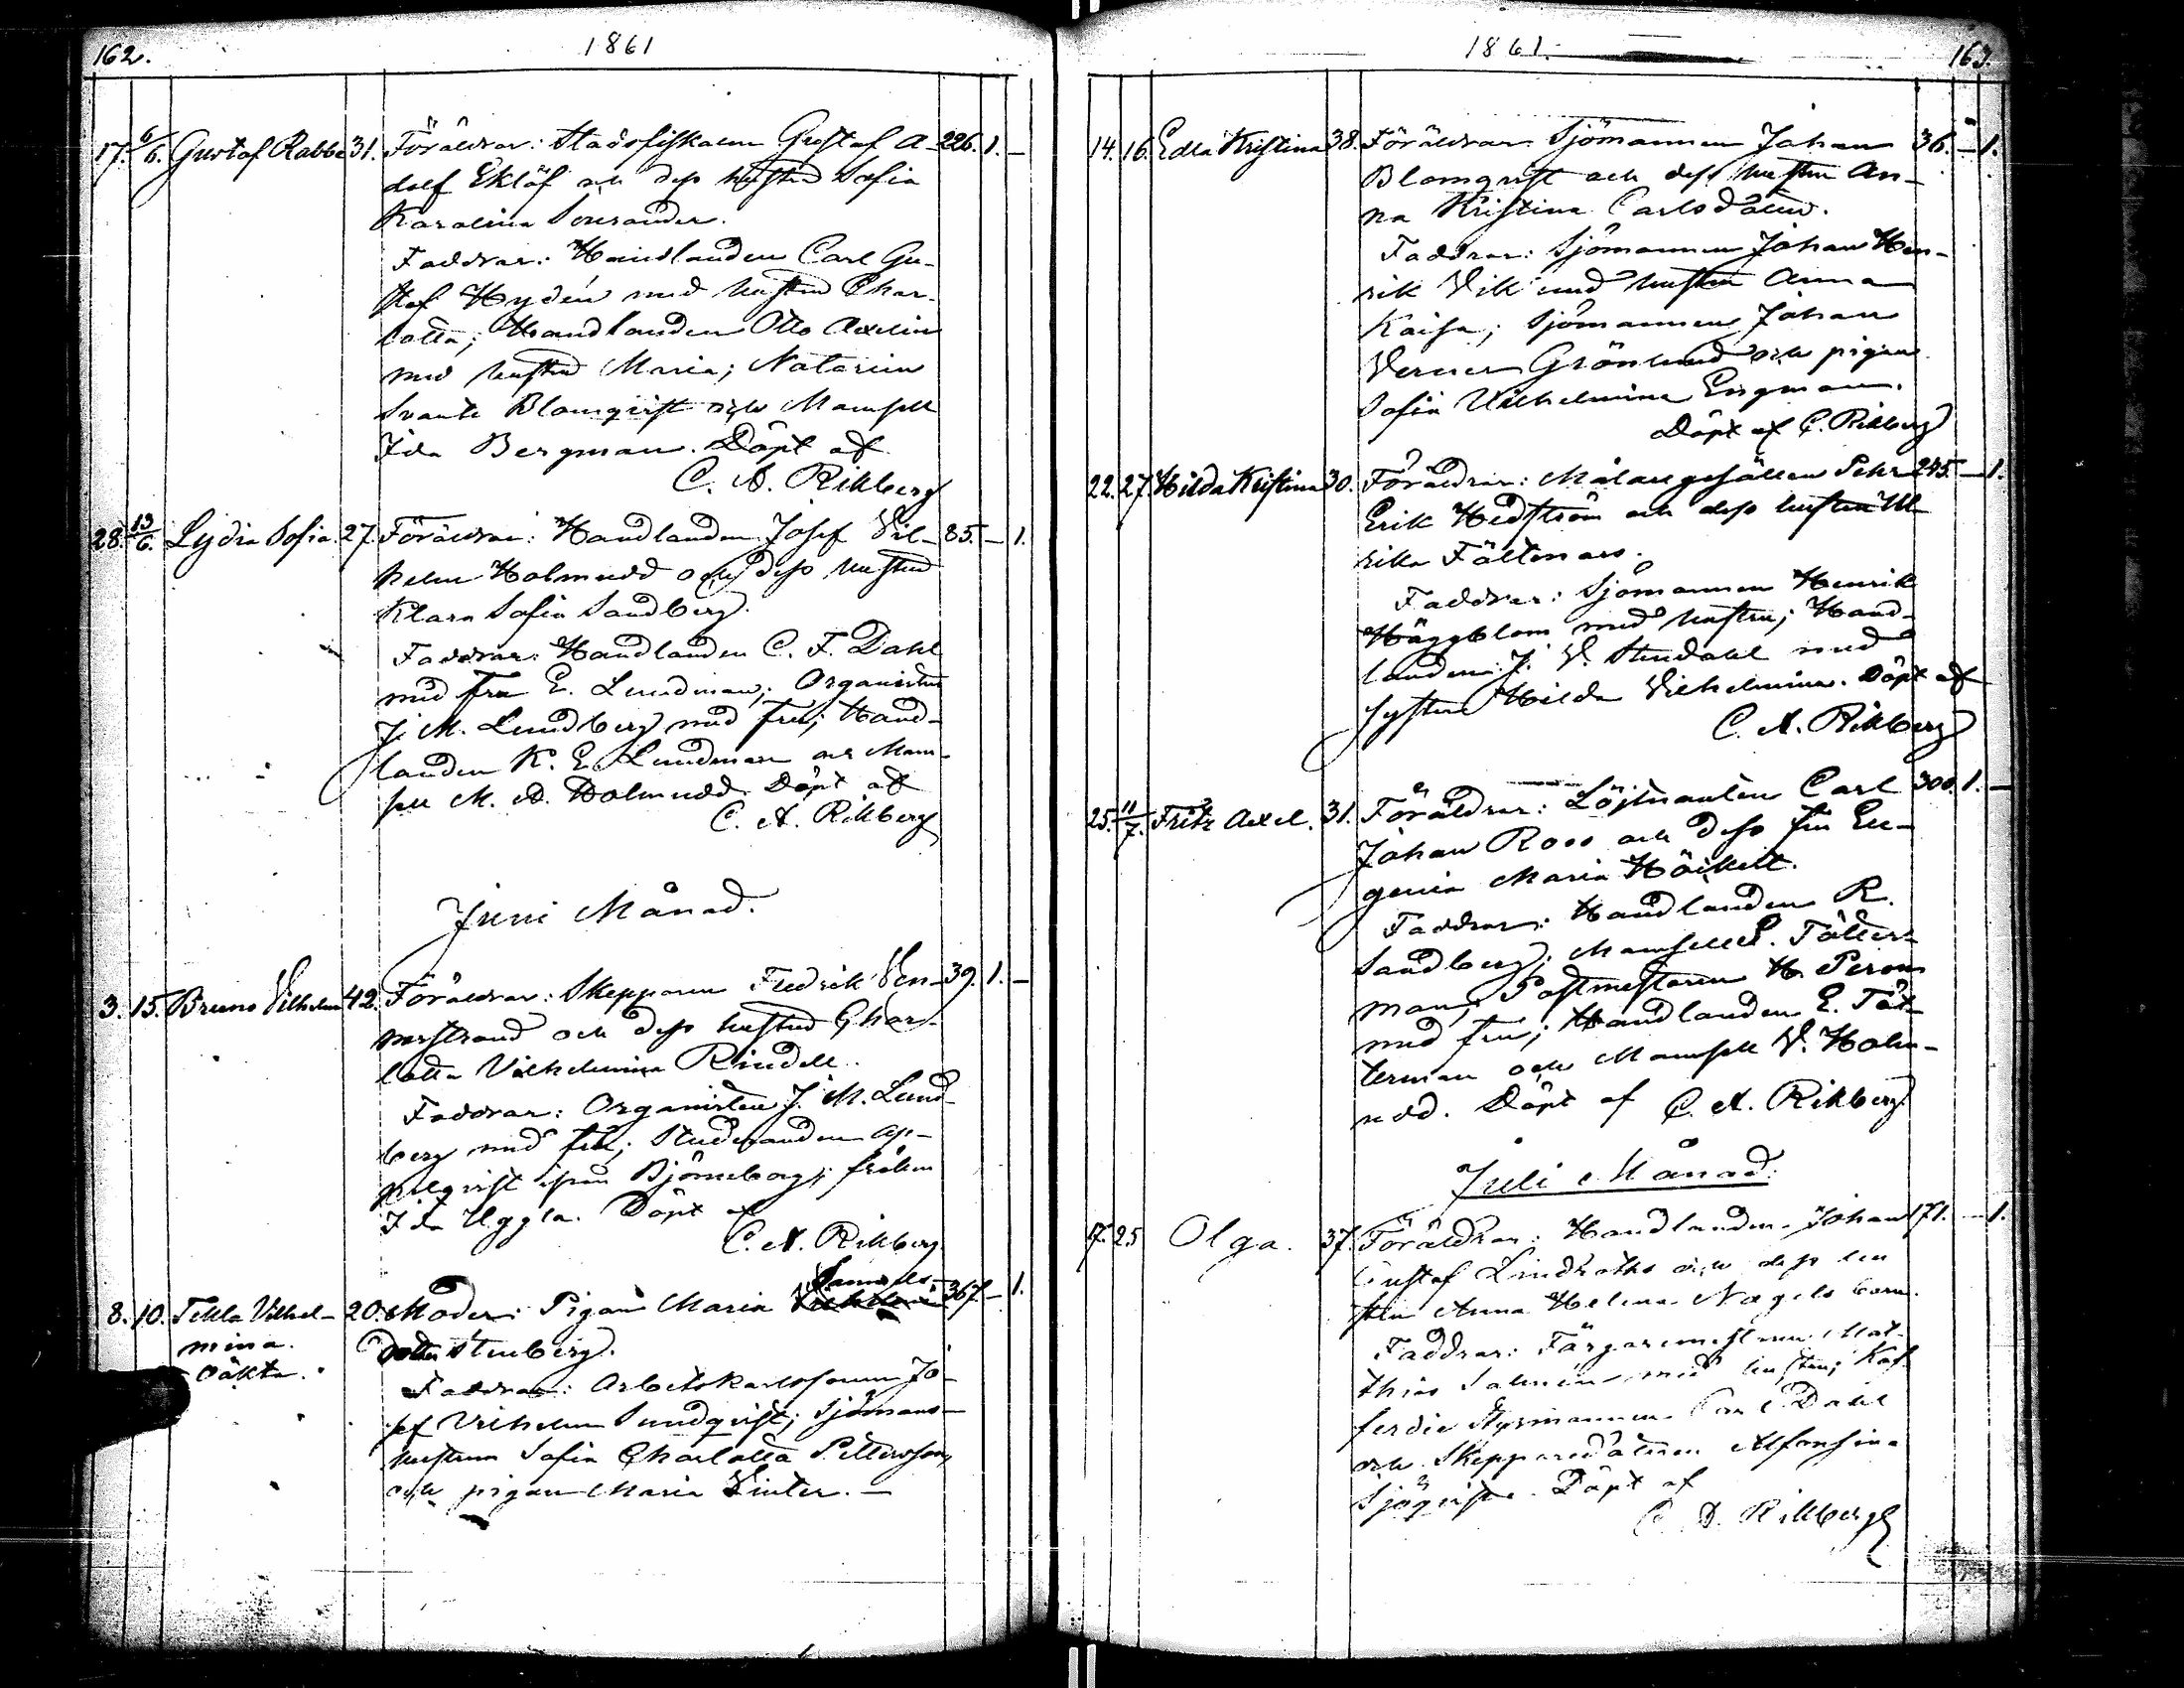 162.
1861
17. 6/6. Gustaf Rabbe 31. Föräldrar: Stadsfiskalen Gustaf A- 226. 1. –
dolf Eklöf och dess hustru Sofia
Karolina Sourander.
Faddrar: Handlanden Carl Gu-
staf Hydén med hustru Char-
lotta; Handlanden Otto Axelin
med hustru Maria; Notarien
Svante Blomqvist och Mamsell
Ida Bergman. Döpt af
C. A. Rikberg
28. 13/6. Lydia Sofia. 27. Föräldrar: Handlanden Josef Vil- 85. – 1.
helm Holmudd och dess hustru
Klara Sofia Sandberg.
Faddrar: Handlanden C. F. Dahl
med fru E. Lundman; Organisten
J. M. Lundberg med fru; Hand-
landen K. E. Lundman och Mam-
sell M. A. Holmudd. Döpt af
C. A. Rikberg
Juni Månad.
3. 15. Bruno Vilhelm 42. Föräldrar: Skepparen Fredrik Ven- 39. 1. –
nerstrand och dess hustru Char-
lotta Vilhelmina Rindell.
Faddrar: Organisten J. M. Lund-
berg med fru; Studeranden Ap-
pelqvist ifrån Björneborg; fröken
Ida Uggla. Döpt af
C. A. Rikberg
Samuels-
8. 10. Tekla Vilhel- 20. Moder: Pigan Maria 367. – 1.
mina. dotter Stenberg.
oäkta.
Faddrar: Arbetskarlssonen Jo-
sef Vilhelm Sundqvist; Sjömans-
hustrun Sofia Charlotta Pettersson,
och pigan Maria Winter. –
1861.
163.
14. 16. Edla Kristina 38. Föräldrar: Sjömannen Johan 36. – 1.
Blomqvist och dess hustru An-
na Kristina Carlsdotter.
Faddrar: Sjömannen Johan Hen-
rik Vik med hustru Anna
Kaisa; Sjömannen Johan
Verner Grönlund och pigan
Sofia Vilhelmina Engman.
Döpt af C. Rikberg
22. 27. Hilda Kristina 30. Föräldrar: Målaregesällen Pehr 245. – 1.
Erik Hedström och dess hustru Ul-
rika Fältmars.
Faddrar: Sjömannen Henrik
Häggblom med hustru; Hand-
landen J. V. Stendahl med
syster Hilda Vilhelmina. Döpt af
C. A. Rikberg
25. 11/7. Fritz Axel. 31. Föräldrar: Löjtnanten Carl 300. 1. –
Johan Roos och dess fru Eu-
genia Maria Höckert.
Faddrar: Handlanden R.
Sandberg; Mamsell E. Tötter-
man; Postmästaren H. Peron
med fru; Handlanden E. Töt-
terman och Mamsell V. Holm-
udd. Döpt af C. A. Rikberg
Juli Månad.
17. 25 Olga. 37. Föräldrar: Handlanden Johan 171. – 1.
Gustaf Lindroths och dess hu
stru Anna Helena Nogels barn.
Faddrar: Färgaremästaren Mat-
thias Salmén med hustru; Kof-
ferdie Styrmannen Carl Dahl
och Skepparedottern Alfonsina
Sjöqvist. Döpt af
C. A. Rikberg